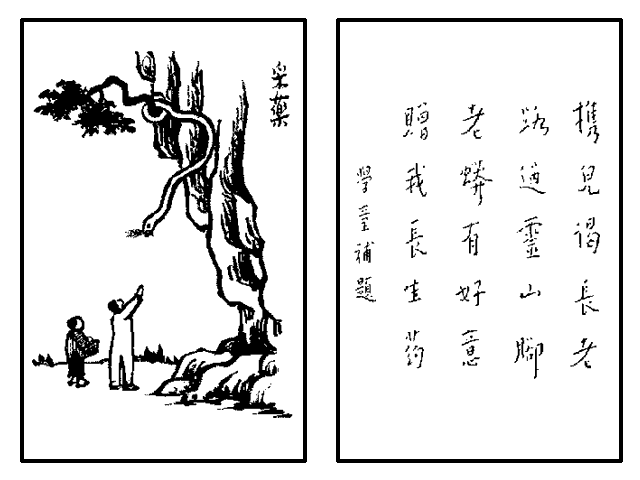 采藥
攜兒谒長老
路過靈山腳
老蟒有好意
贈我長生药
學童補題